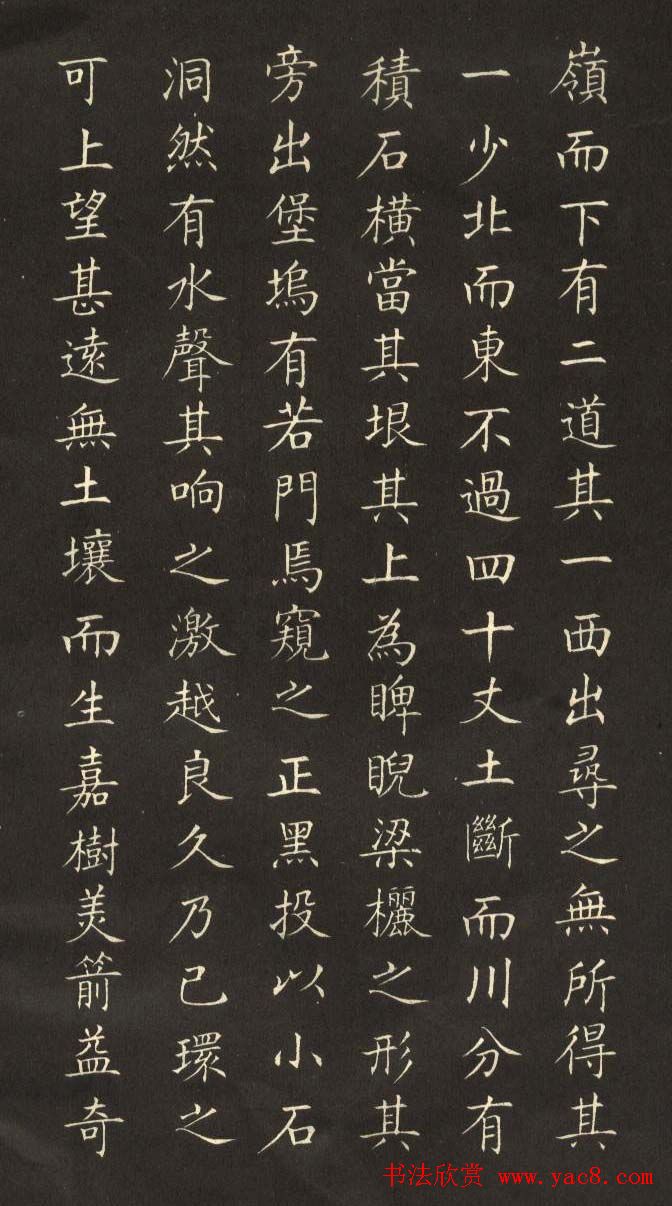 嶺而下有二道其一西出尋之無所得其
一少北而東不過四十丈土斷而川分有
積石橫當其垠其上為睥睨梁欐之形其
旁出堡塢有若門焉窺之正黑投以小石
洞然有水聲其响之激越良久乃已環之
可上望甚遠無土壤而生嘉樹美箭益奇
书法欣赏 www.yac8.com